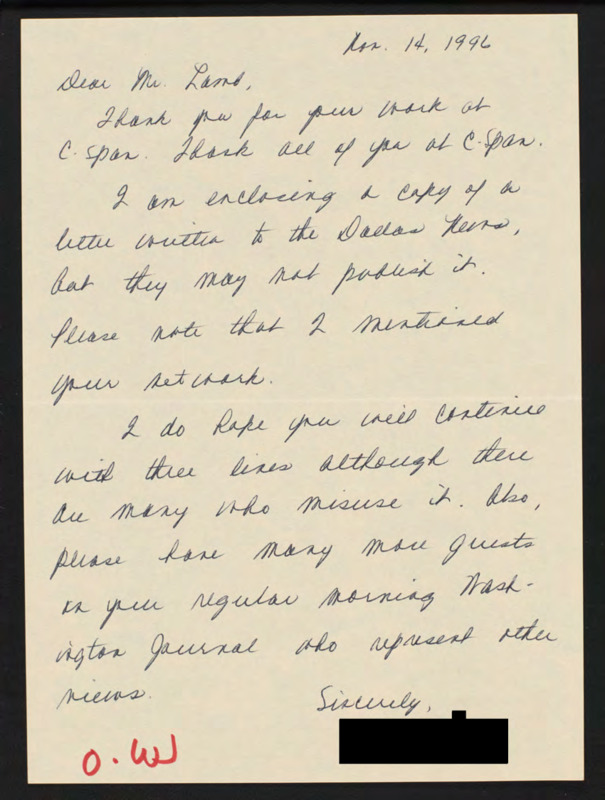 Nov. 14, 1996
Dear Mr. Lamb,
Thank you for your work at
C-Span. Thank all of you at C-Span.
I am enclosing a copy of a
letter written to the Dallas News,
but they may not publish it.
Please note that I mentioned
your network.
I do hope you will continue
with three lines although there
are many who misuse it. Also,
please have many more guests
on your regular morning Wash-
ington Journal who represent other
views.
Sincerely,
O.W